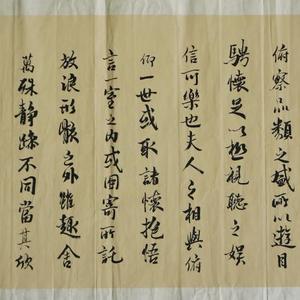 俯察品類之盛所以遊目
騁懷足以極視聽之娱
信可樂也夫人之相與俯
仰一世或取諸懷抱悟
言一室之內或因寄所託
放浪形骸之外雖趣舍
萬殊静躁不同當其欣